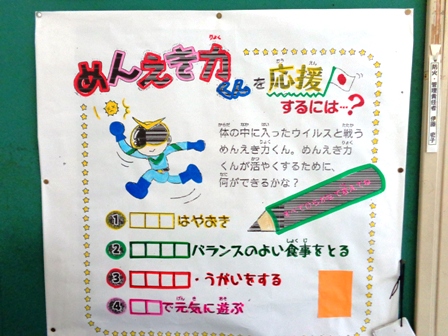 めんえき力くんを応援
するには…?
体の中に入ったウイルスと戦う
めんえき力くん。めんえき力
くんが活やくするために、
何ができるかな?
① □□□はやおき
② □□□□バランスのよい食事をとる
③ □□□□・うがいをする
④ □□で元気に遊ぶ